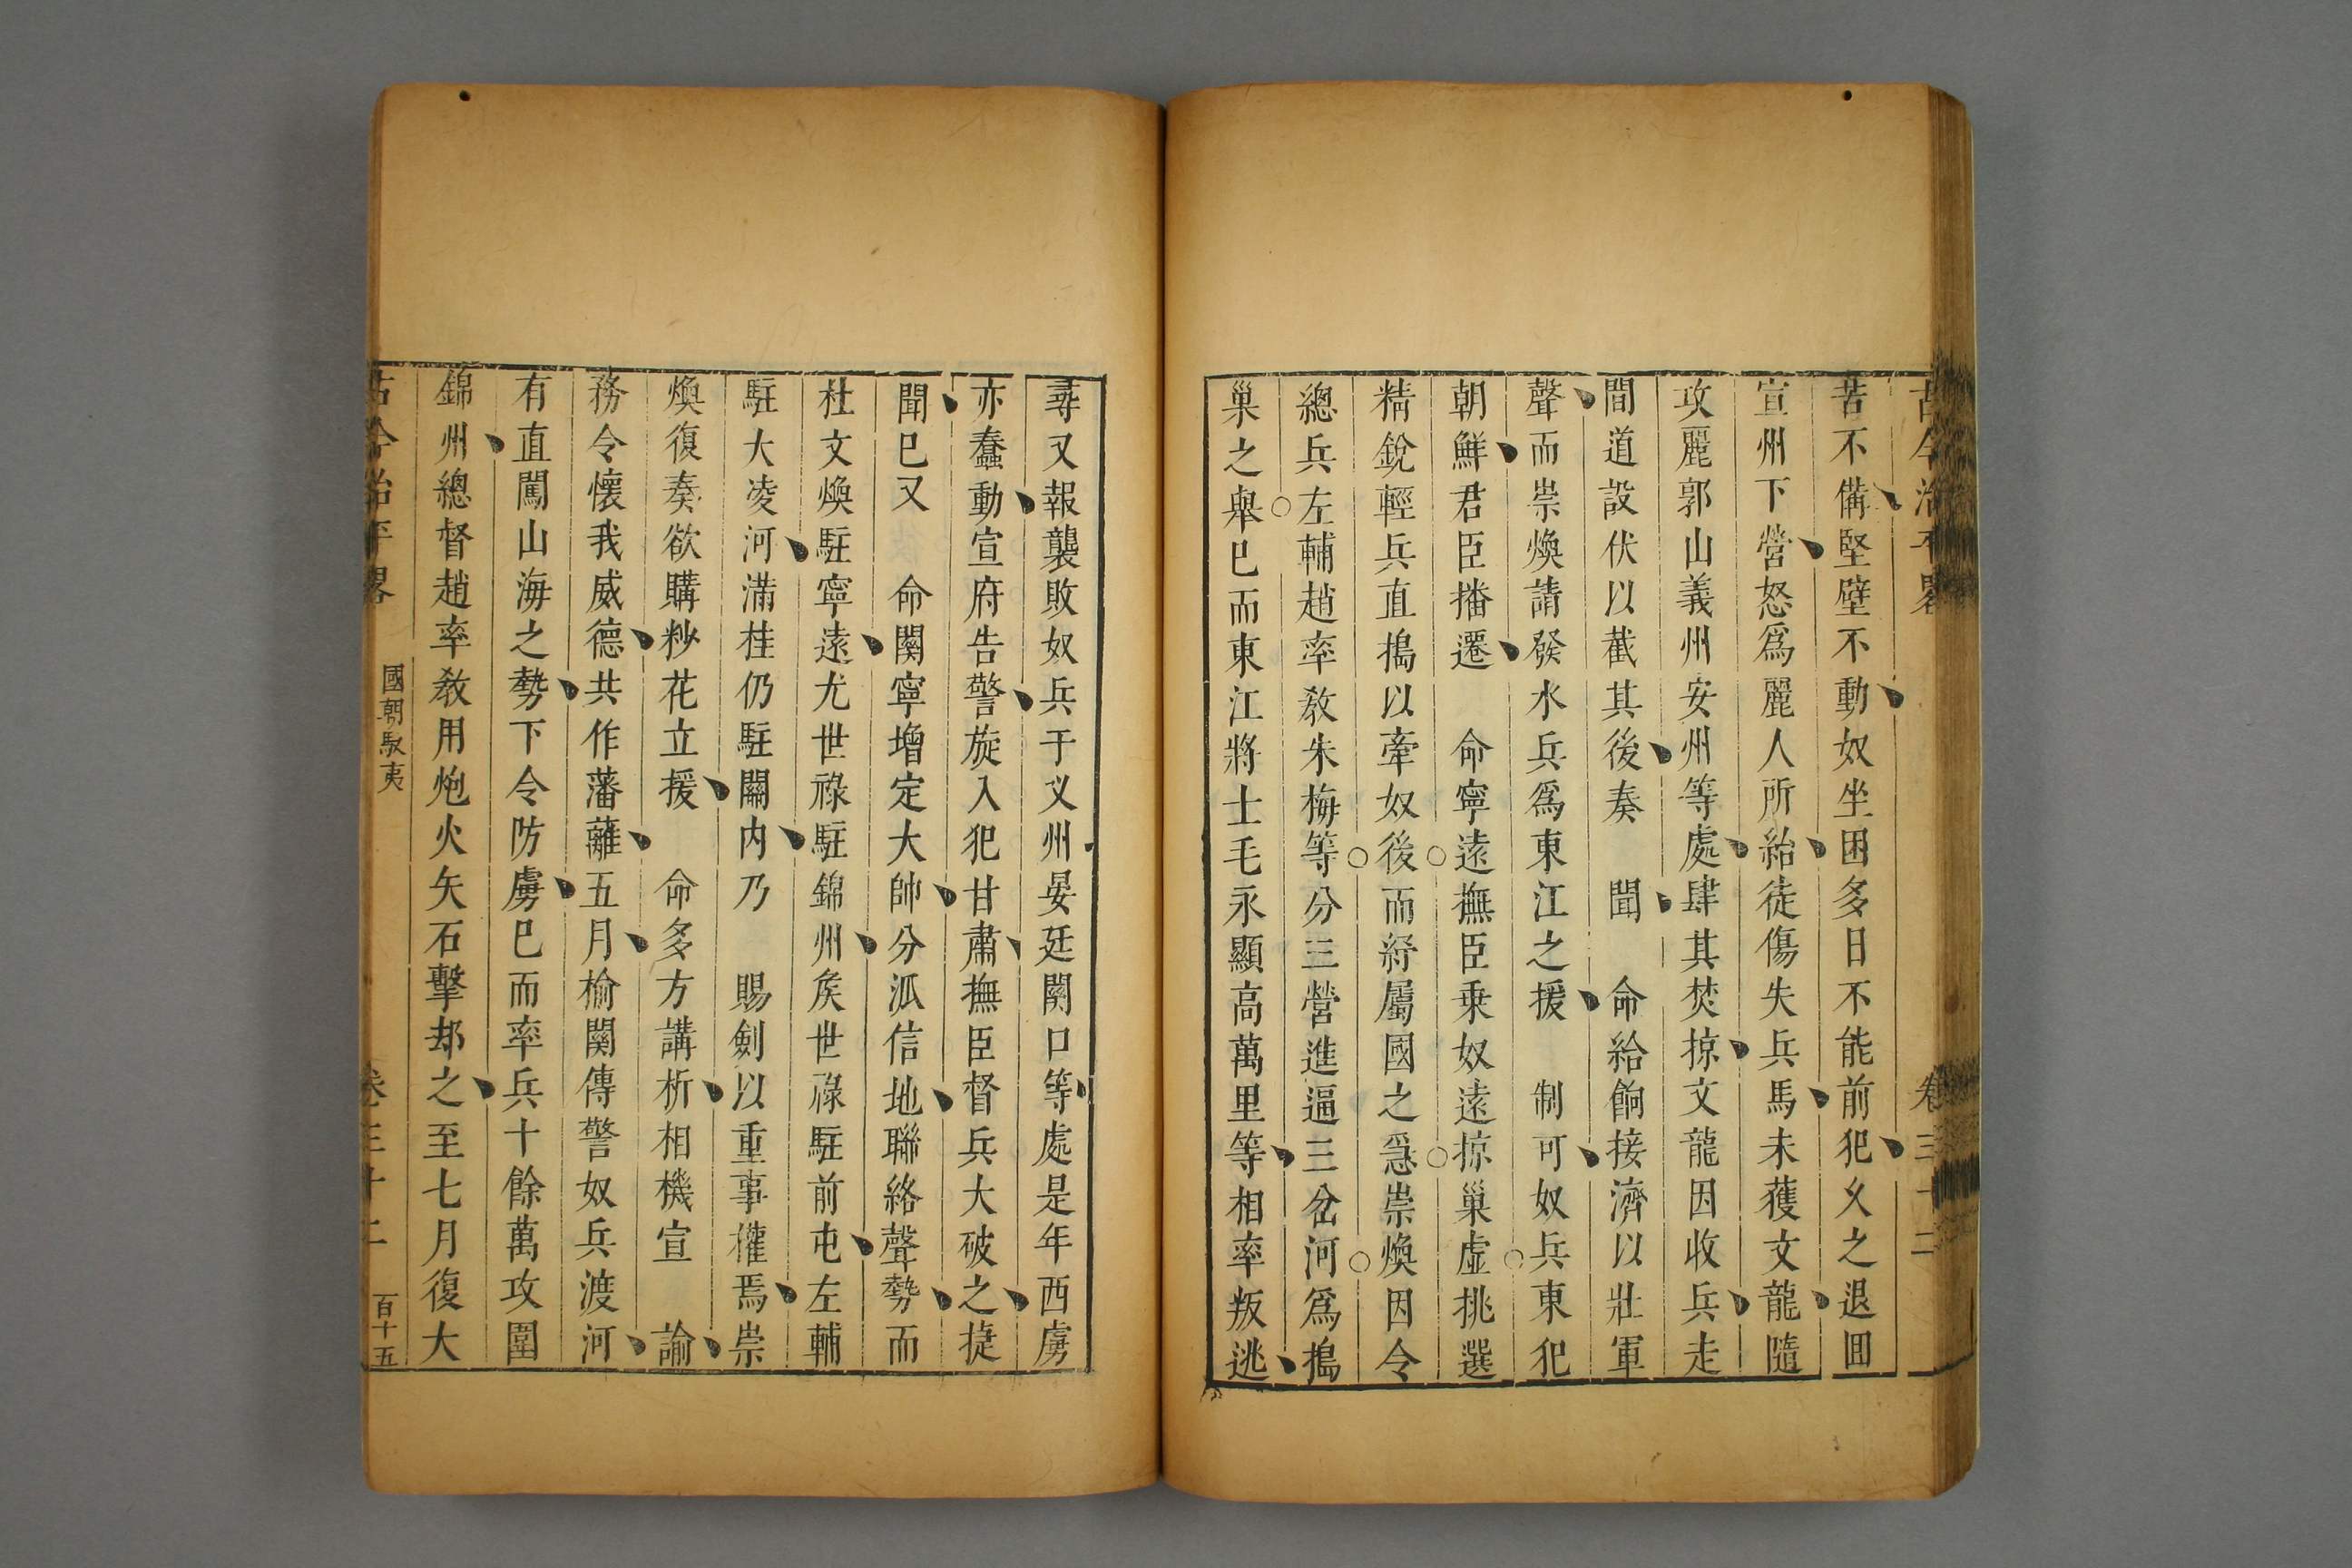 古今治平畧 卷三十二
苦不備堅壁不動奴坐困多日不能前犯乆之退囬
宣州下營怒爲麗人所紿徒傷失兵馬未獲文龍隨
攻麗郭山義州安州等處肆其焚掠文龍因收兵走
間道設伏以截其後奏 聞 命給餉接濟以壯軍
聲而崇煥請發水兵爲東江之援 制可奴兵東犯
朝鮮君臣播遷 命寧遠撫臣乗奴遠掠巢虛挑選
精銳輕兵直搗以牽奴後而紓屬國之急崇煥因令
總兵左輔趙率教朱梅等分三營進逼三岔河爲搗
巢之舉巳而東江將士毛永顯高萬里等相率叛逃
尋又報襲敗奴兵于义州晏廷關口等處是年西虜
亦蠢動宣府告警旋入犯甘肅撫臣督兵大破之捷
聞巳又 命關寧增定大帥分派信地聯絡聲勢而
杜文煥駐寧遠尤世祿駐錦州矦世祿駐前屯左輔
駐大凌河滿桂仍駐關内乃 賜劍以重事權焉崇
煥復奏欲購粆花立援 命多方講析相機宣 諭
務令懷我威德共作藩蘺五月榆關傳警奴兵渡河
有直闖山海之勢下令防虜巳而率兵十餘萬攻圍
錦州總督趙率教用炮火矢石擊却之至七月復大
古今治平畧 國朝馭夷 卷三十二 百十五